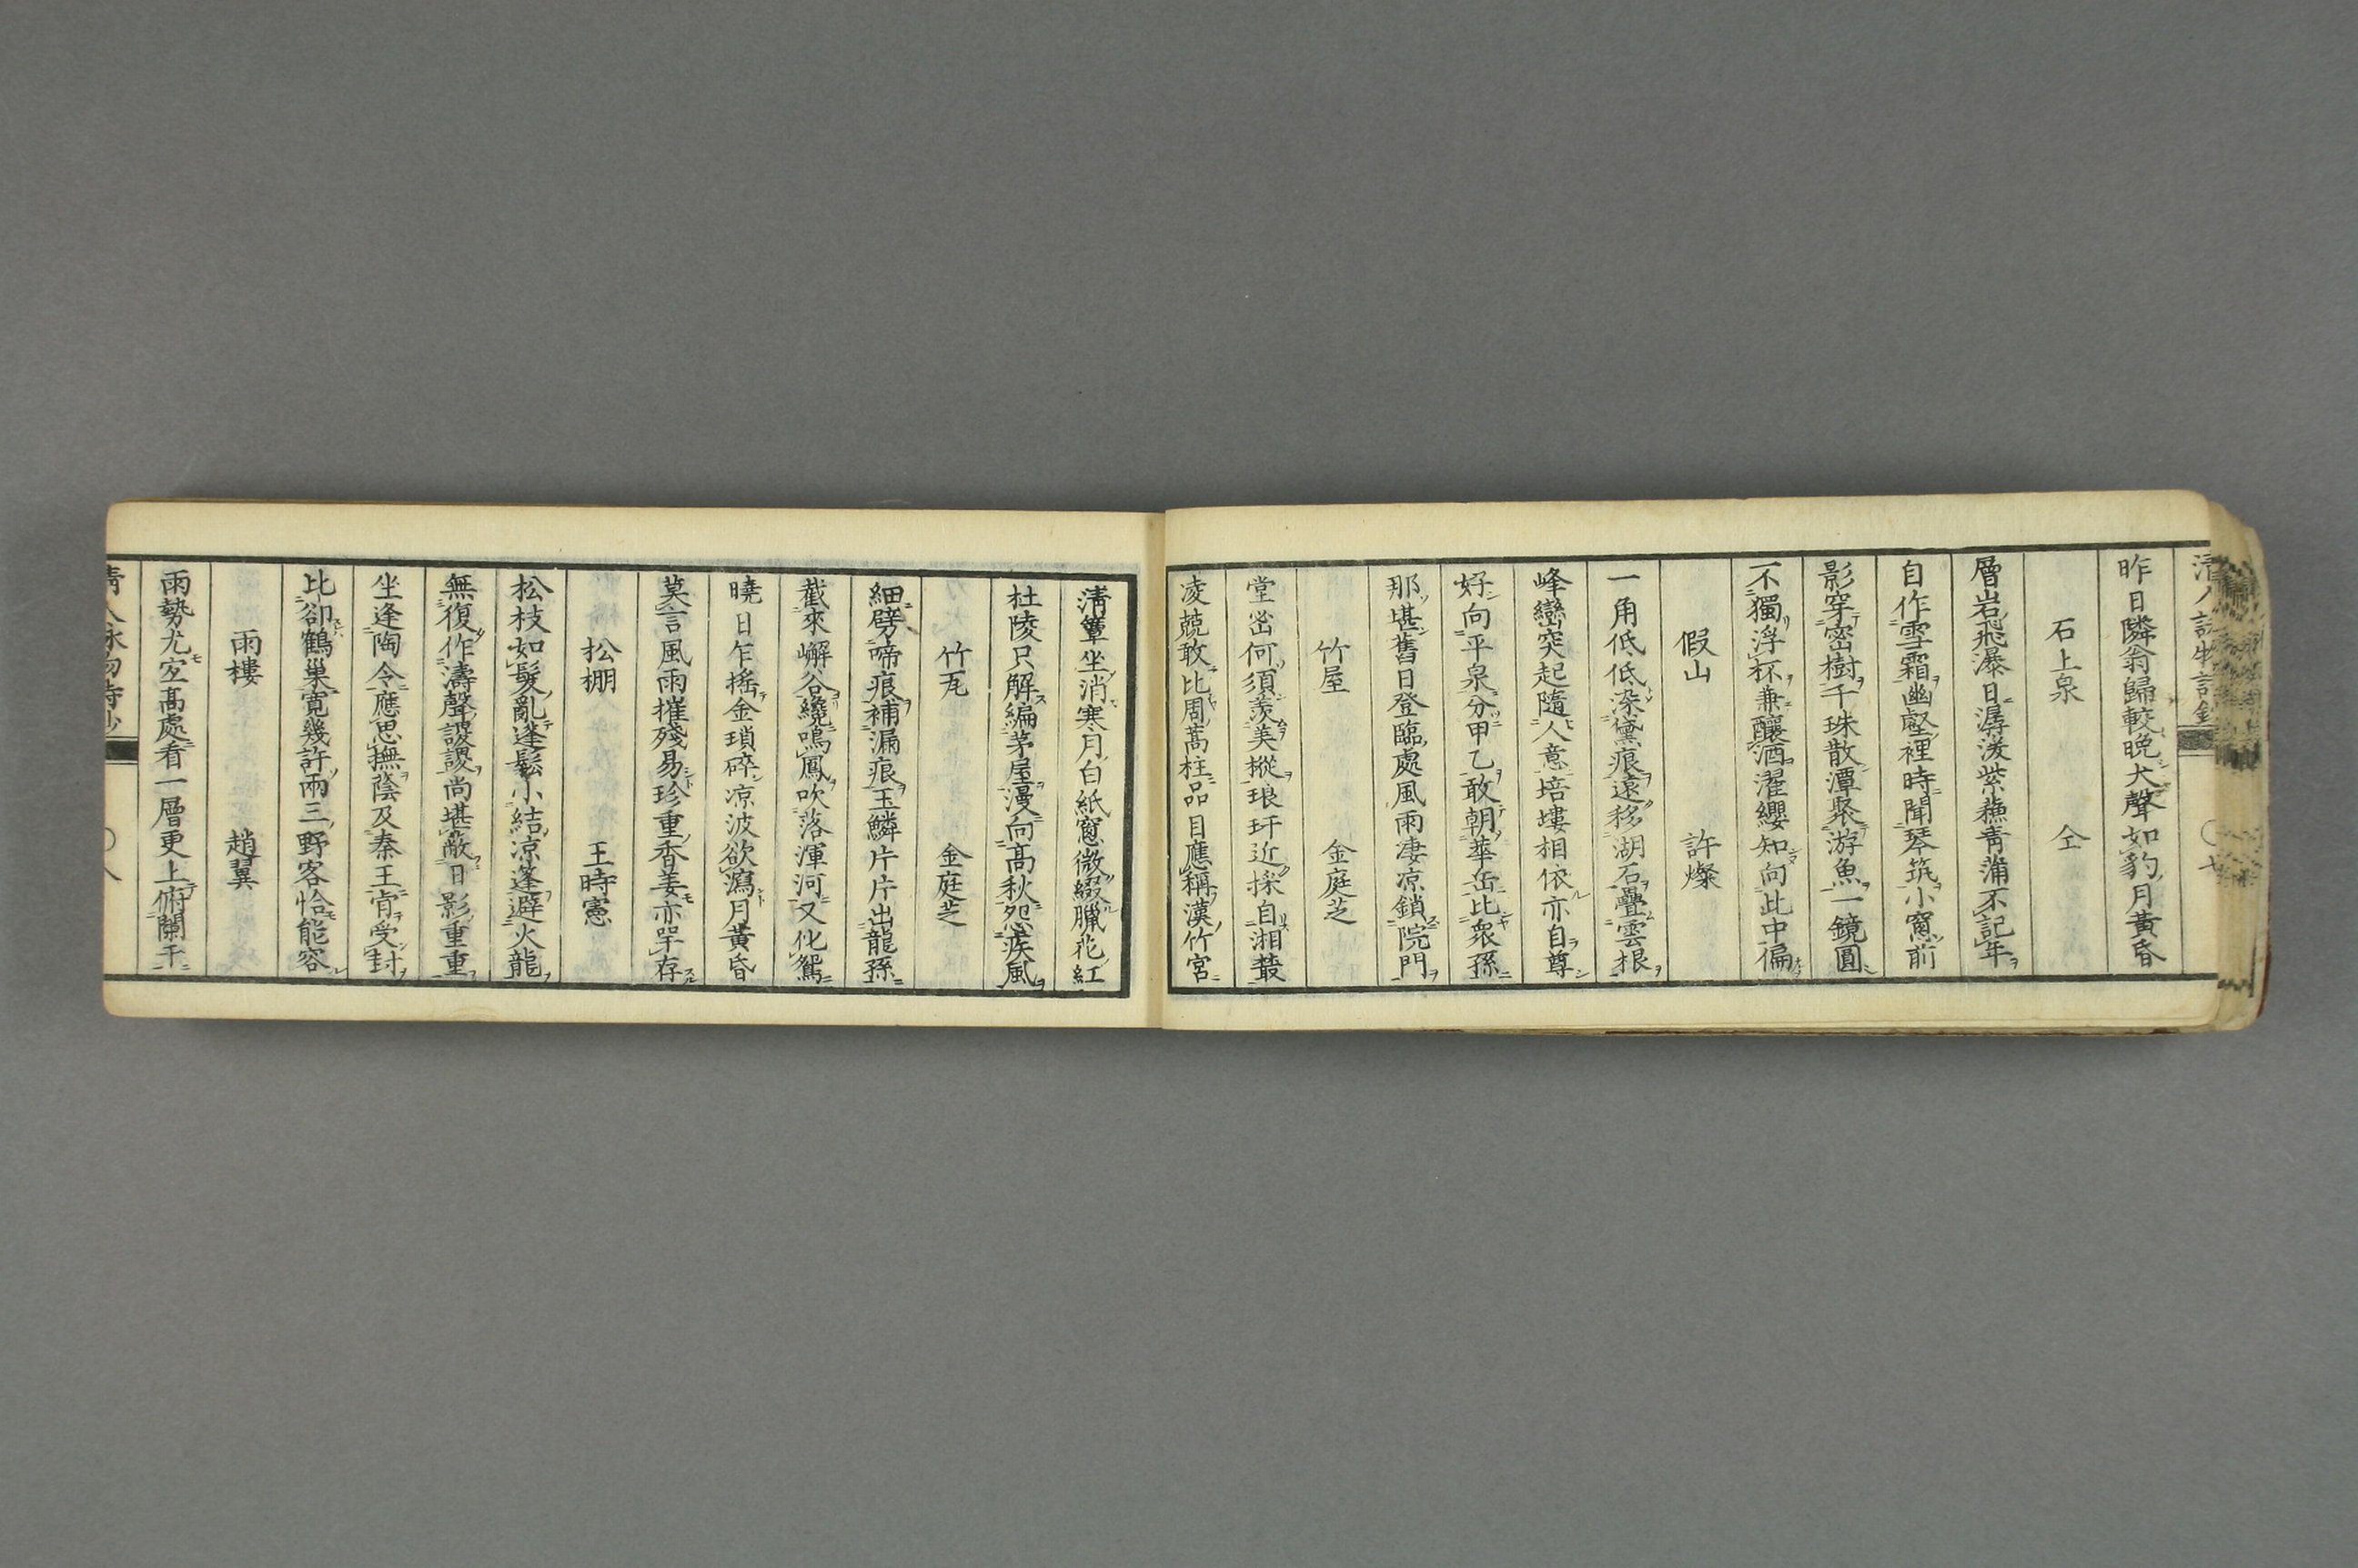 昨日隣翁歸較晩犬聲如豹月黃昏
石上泉　仝
層岩飛瀑日潺湲紫蘸靑蒲不記年
自作雪霜幽壑裡時聞琴筑小窻前
影穿密樹千珠散潭聚游魚一鏡圓
不獨浮杯兼釀酒濯纓知向此中偏
假山　許燦
一角低低染黛痕遠移湖石疊雲根
峰巒突起隨人意培塿相依亦自尊
好向平泉分甲乙敢朝華岳比衆孫
那堪舊日登臨處風雨凄凉鎖院門
竹屋　金庭芝
堂密何須羨美樅琅玕近採自湘叢
凌兢敢比周蒿柱品目應稱漢竹宮
淸簟坐消寒月白紙窻微綴臘花紅
杜陵只解編茅屋漫向高秋怨疾風
竹瓦　金庭芝
細劈啼痕補漏痕玉鱗片片出龍孫
截來嶰谷纔鳴鳳吹落渾河又化鴛
曉日乍搖金瑣碎凉波欲瀉月黃昏
莫言風雨摧殘易珍重香姜亦罕存
松棚　王時憲
松枝如髮亂逢鬆小結凉蓬避火龍
無復作濤聲謖謖尚堪蔽日影重重
坐逢陶令應思撫蔭及秦王肯受封
比卻鶴巢寬幾許兩三野客恰能容
雨樓　趙翼
雨勢尤宜高處看一層更上俯闌干